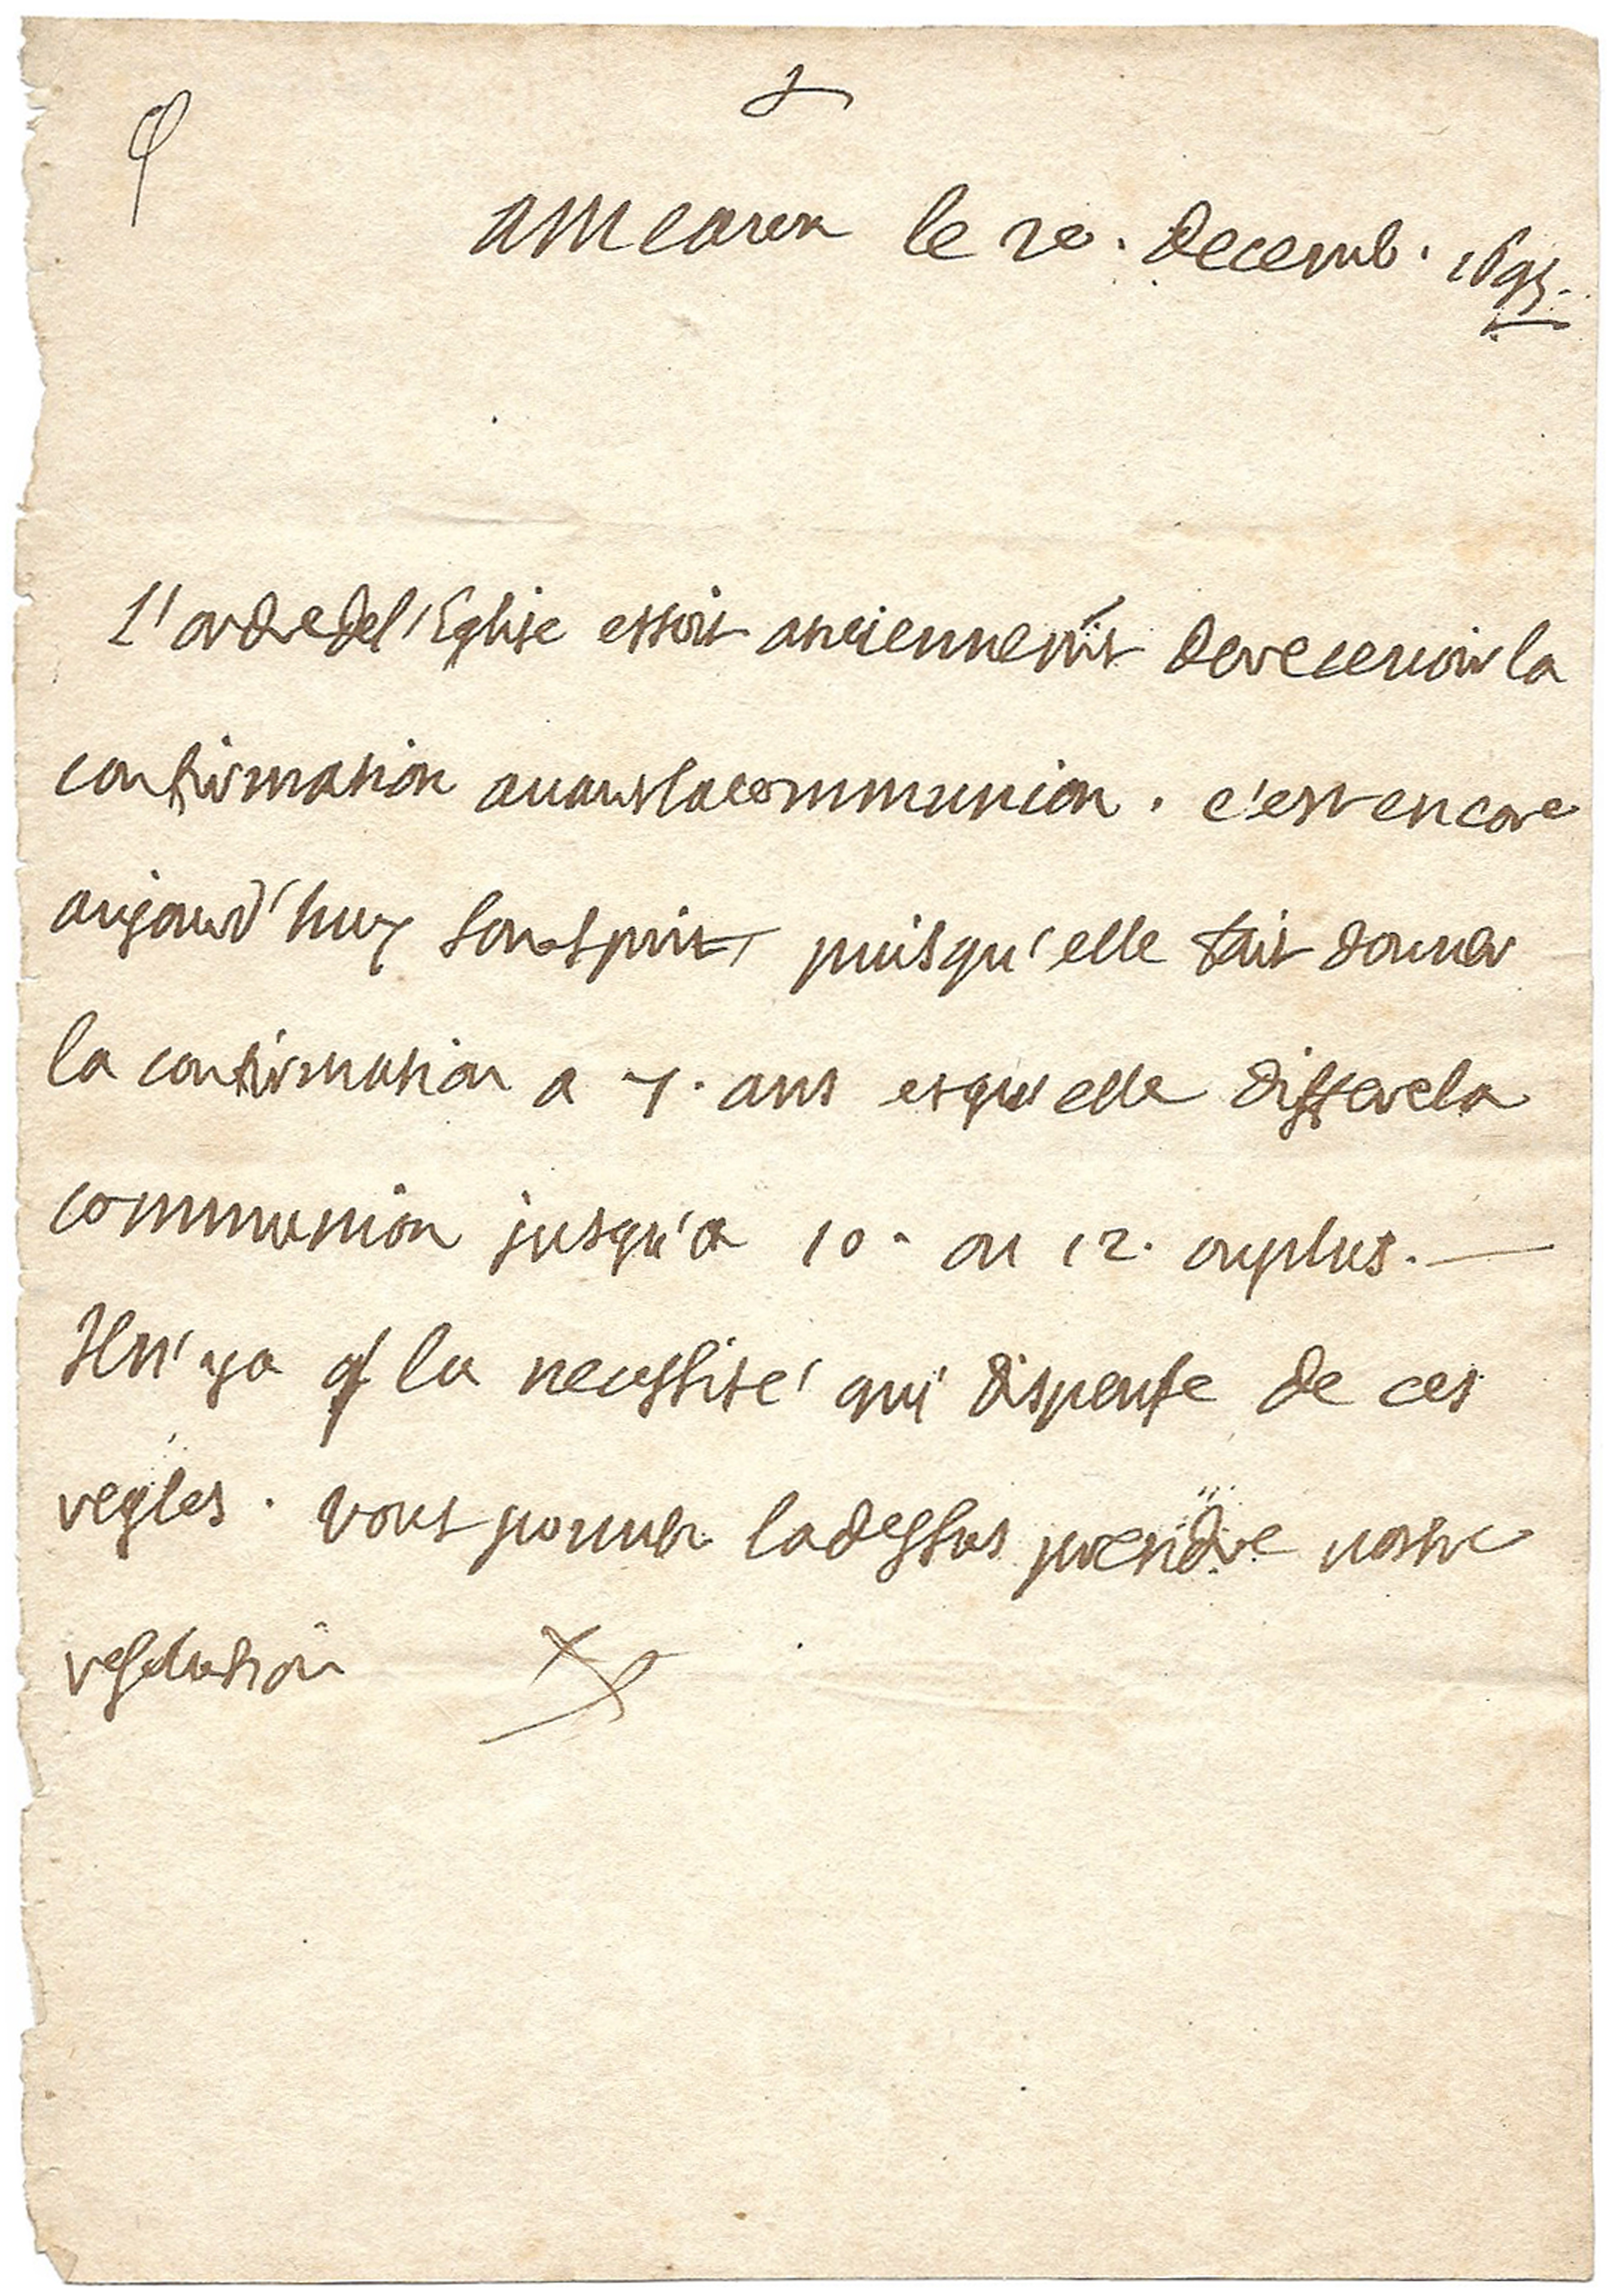 a Meaux le 20. decemb. 1695.
L'ordre de l'Eglise estoit anciennemt de recevoir la
confirmation avant la communion. c'est encore
aujourd'huy son esprit, puisqu'elle fait donner
la confirmation a 7. ans et qu'elle differe la
communion jusqu'a 10. ou 12. ou plus.—
Il n'y a q la necessité qui dispense de ces
regles. vous pouvez la dessus prendre vostre
resolution